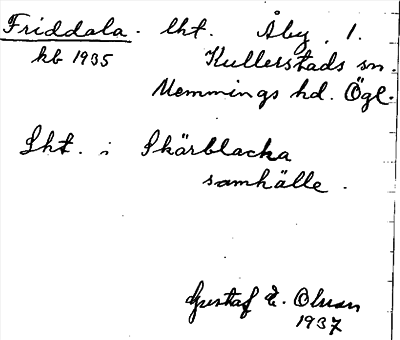 Friddala. lht. Åby, 1.
kb 1935 Kullerstads sn.
Memmings hd. Ögl.
Lht. i Skärblacka
samhälle.
Gustaf E. Olsson
1937